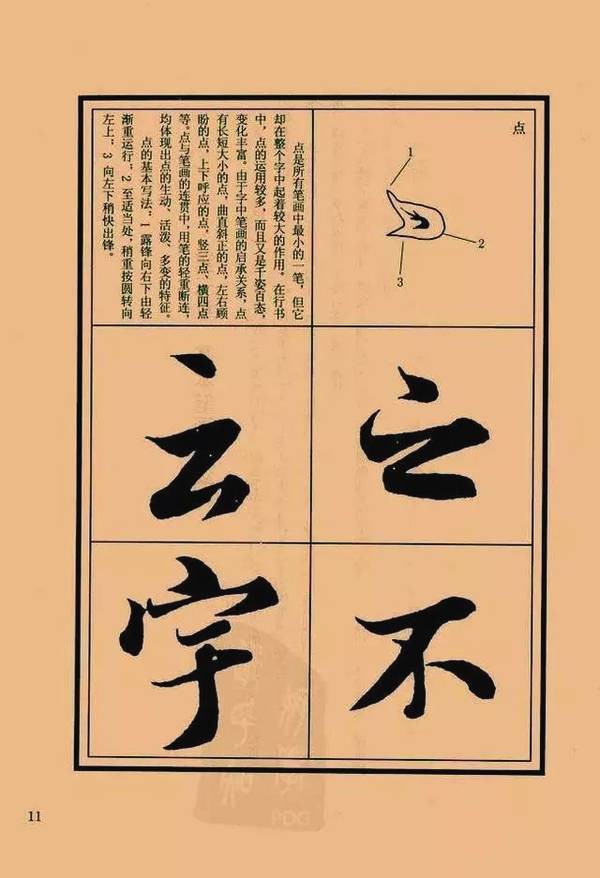 点
1
2
3
点是所有笔画中最小的一笔，但它
却在整个字中起着较大的作用。在行书
中，点的运用较多，而且又是千姿百态，
变化丰富。由于字中笔画的启承关系，点
有长短大小的点，曲直斜正的点，左右顾
盼的点，上下呼应的点，竖三点、横四点
等。点与笔画的连贯中，用笔的轻重断连，
均体现出点的生动、活泼、多变的特征。
点的基本写法：1 露锋向右下由轻
渐重运行；2 至适当处，稍重按圆转向
左上；3 向左下稍快出锋。
之
云
不
字
11
PDG